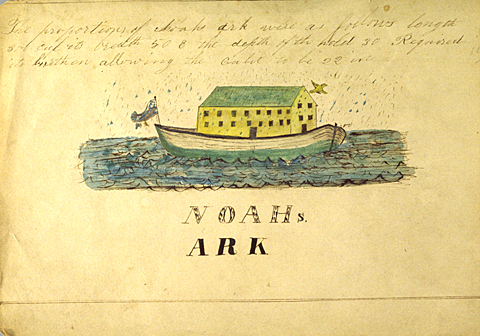 The proportions of Noahs ark were as follows length
300 cubits bredth 50 & the depth of the hold 30 Required
its burthen allowing the Cubit to be 22 in
NOAHs.
ARK